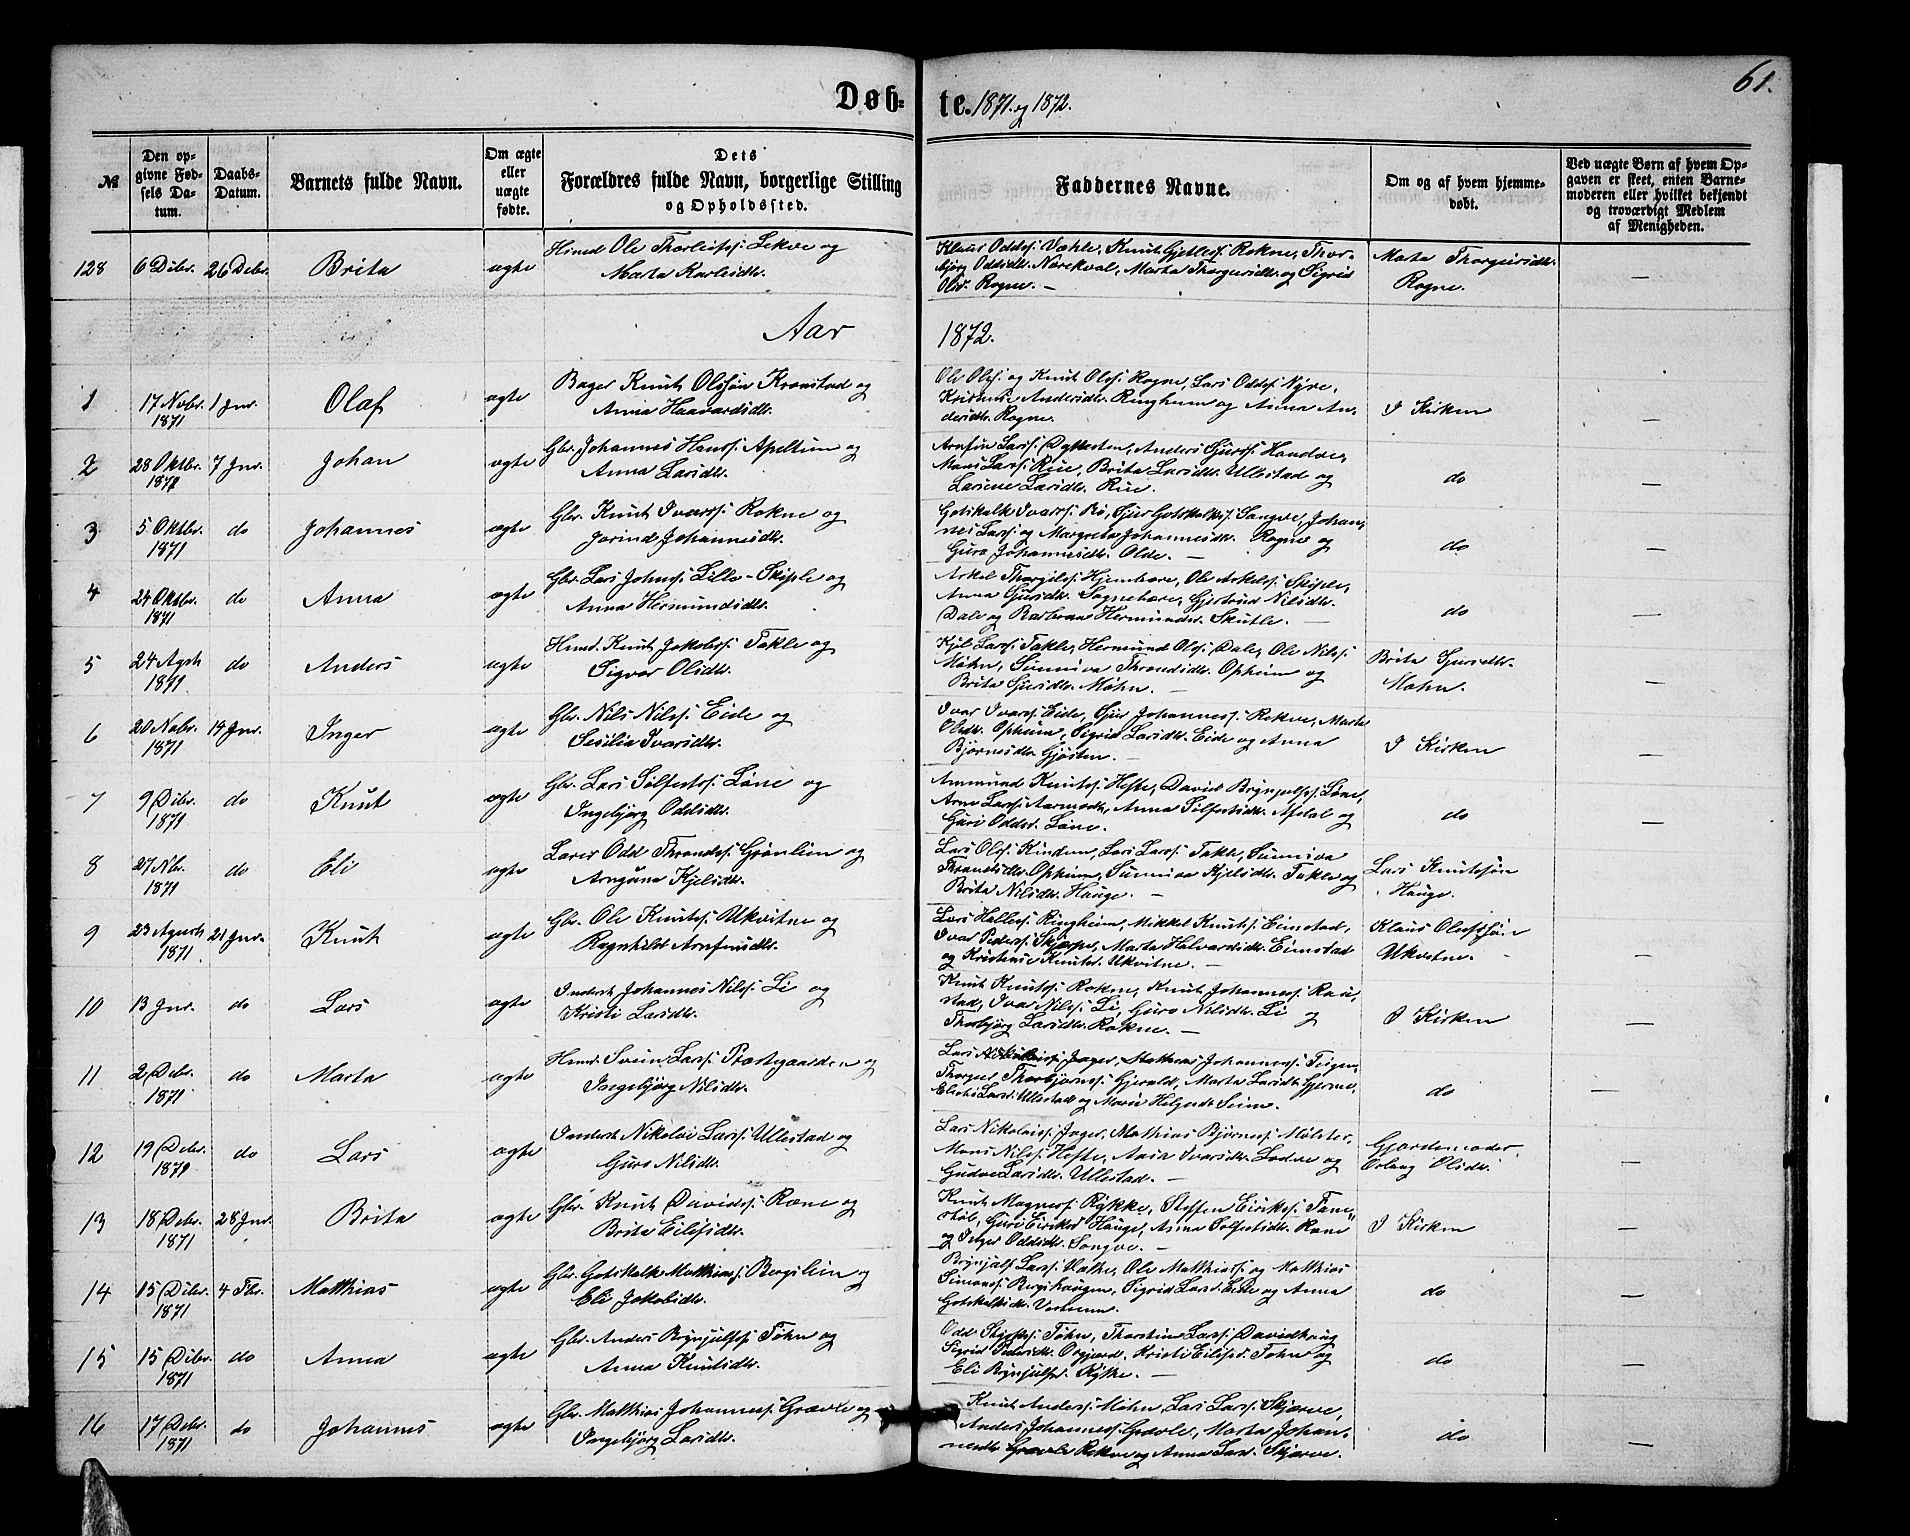 61.
Døbte. 1871. og 1872.
№
Den opgivne Fødsels Datum.
Daabs-Datum.
Barnets fulde Navn.
Om ægte eller uægte fødte.
Dets Forældres fulde Navn, borgerlige Stilling og Opholdssted.
Faddernes Navne.
Om og af hvem hjemmedøbt.
Ved uægte Børn af hvem Opgaven er skeet, enten Barnemoderen eller hvilket bekjendt og troværdigt Medlem af Menigheden.
128 6 Debr. 26 Debr. Brita ægte Hmd Ole Thorleifss. Lekve og
Marta Karlisdtr.
Klaus Oddss. Væhle, Knut Gjelless. Rokne, Thor-
bjørg Oddsdtr. Norekval, Marta Thorgersdtr. og Sigrid
Olsd. Rogne. —
Marta Thorgersdtr.
Rogne. —
Aar 1872.
1 17 Novbr. 1871 1 Jnr. Olaf ægte Bager Knut Olssøn Kronstad og
Anna Haavardsdtr.
Ole Olss. og Knut Olss. Rogne, Lars Oddss. Nyre,
Kristense Andersdtr. Ringheim og Anna An-
dersdtr. Rogne.
I Kirken —
2 28 Oktbr. 1871 7 Jnr. Johan ægte Gbr. Johannes Hanss. Apeltun og
Anna Larsdtr.
Arnfin Larss. Dykesten, Anders Sjurss. Haadve,
Mons Larss. Rue, Brita Larsdtr. Ullestad og
Larsine Larsdtr. Rue.
do —
3 5 Oktbr. 1871 do Johannes ægte Gbr. Knut Ivarss. Rokne og
Jorind Johannesdtr.
Gotskalk Ivarss. Bø, Sjur Gotskalks. Sangve, Johan-
nes Larss. og Margreta Johannesdtr. Rogne og
Guro Johannesdtr. Olde. —
do —
4 24 Oktbr. 1871 do Anna ægte Gbr. Lars Johnss. Lille-Skiple og
Anna Hermundsdtr.
Askel Thorgilss. Hjembere, Ole Askelss. Skiple,
Anna Sjursdtr. Sognebere, Gjertrud Nilsdtr.
Dale og Barbraa Hermundsd. Skutle. —
do —
5 24 Agst. 1871 do Anders ægte Hmd. Knut Jakobss. Takle og
Sigvor Olsdtr.
Kjel Larss. Takle, Hermund Olss. Dale, Ole Nilss.
Møhn, Sunniva Throndsdtr. Opheim og
Brita Sjursdtr. Møhn. —
Brita Sjursdtr.
Møhn. —
6 20 Novbr. 1871 14 Jnr. Inger ægte Gbr. Nils Nilss. Eide og
Sesilia Ivarsdtr.
Ivar Ivarss. Eide, Sjur Johanness. Rekve, Marta
Olsdtr. Opheim, Sigrid Larsdtr. Eide og Anna
Bjørnesdtr. Gjøsten. —
I Kirken —
7 9 Debr. 1871 do Knut ægte Gbr. Lars Sølfestss. Løne og
Ingebjørg Oddsdtr.
Ammund Knutss. Hefte, David Brynjulfss. Løne,
Arne Larss. Aarmodt, Anna Sølfestsdtr. Afdal og
Guri Oddsd. Løne.
do —
8 27 Nbr. 1871 do Eli ægte Lærer Odd Throndss. Grønlien og
Arnguna Kjelsdtr.
Lars Olss. Kinden, Lars Larss. Takle, Sunniva
Throndsdtr. Opheim, Sunniva Kjelsdtr. Takle og
Brita Nilsdtr. Hauge. —
Lars Knutssøn
Hauge. —
9 23 Agust. 1871 21 Jnr. Knut ægte Gbr. Ole Knutss. Ukvitne og
Ragnhild Arnfinsdtr.
Lars Halless. Ringheim, Mikkel Knutss. Eimstad,
Ivar Pederss. Skjerpe, Marta Halvardsdtr. Eimstad
og Kristine Knutsd. Ukvitne. —
Klaus Olafssøn
Ukvitne. —
10 13 Jnr. do Lars ægte Inderst Johannes Nilss. Li og
Kristi Larsdtr.
Knut Knutss. Rokne, Knut Johanness. Rau-
stad, Iver Nilss. Li, Guro Nilsdtr. Li og
Thorbjørg Larsdtr. Rokne. —
I Kirken —
11 2 Debr. 1871 do Marta ægte Hmd. Svein Larss. Præstegaarden og
Ingebjørg Nilsdtr.
Lars Nikolaiss. Jæger, Mathias Johanness. Teigen,
Thorger Thorbjørnss. Gjerald, Marta Larsdtr. Gjerme,
Larsd. Ullestad og Marie Helgesdtr. Seim.
do —
12 19 Debr. 1871 do Lars ægte Inderst Nikolai Larss. Ullestad og
Guro Nilsdtr.
Lars Nikolaiss. Jæger, Mathias Bjørness. Mølster,
Mons Nilss. Hefte, Anna Ivarsdtr. Lødve og
Gudve Larsdtr. Ullestad. —
Gjordemoder
Olsdtr. —
13 18 Debr. 1871 28 Jnr. Brita ægte Gbr. Knut Davidss. Rene og
Brita Eilifsdtr.
Knut Magness. Rykke, Steffen Eirikss. Fane-
støl, Guri Eiriksd. Hauge, Anna Sølfestsdtr. Rene
og Inger Oddsdtr. Songve. —
I Kirken —
14 15 Debr. 1871 4 Fbr. Matthias ægte Gbr. Gotskalk Matthiass. Bergslien og
Eli Jakobsdtr.
Brynjulf Larss. Væthe, Ole Matthiass. og Matthias
Simonss. Berghaugen, Sigrid Larsd. Eide og Anna
Gotskalksdtr.
do —
15 15 Debr. 1871 do Anna ægte Gbr. Anders Brynjulfss. Tøhn og
Anna Knutsdtr.
Odd Tøhn, Thorstein Larss. Davidhaug
Sigrid Pedersdtr. Kristi Eilifsd. Tøhn og
Eli Brynjulfsd. Rykke. —
do —
16 17 Debr. 1871 do Johannes ægte Gbr. Matthias Johanness. Grævle og
Ingebjørg Larsdtr.
Knut Anderss. Møhn, Lars Larss. Skjerve,
Anders Johanness. Grævle, Marta Johan-
nesdtr. Rekve og Anna Larsd. Skjerve.
do —